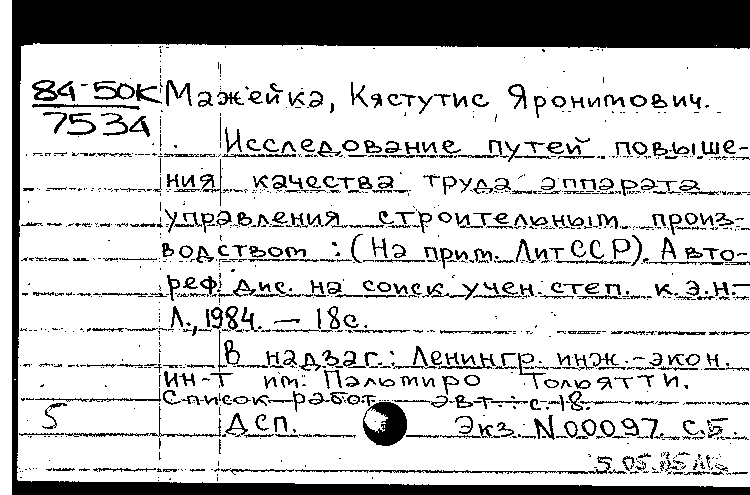 84-50К Мажейка, Кястутис Яронимович.
7534
Исследование путей повыше-
ния качества труда аппарата
управления строительным произ-
водством : (На прим. ЛитССР). Авто-
реф. дис. на соиск. учен. степ. к.э.н.-
Л., 1984. - 18с.
В надзаг.: Ленингр. инж.-экон.
ин-т им. Пальмиро Тольятти.
Список работ авт.: с.18.
5 ДСП. Экз. N 00097. С.Б.
5.05.85